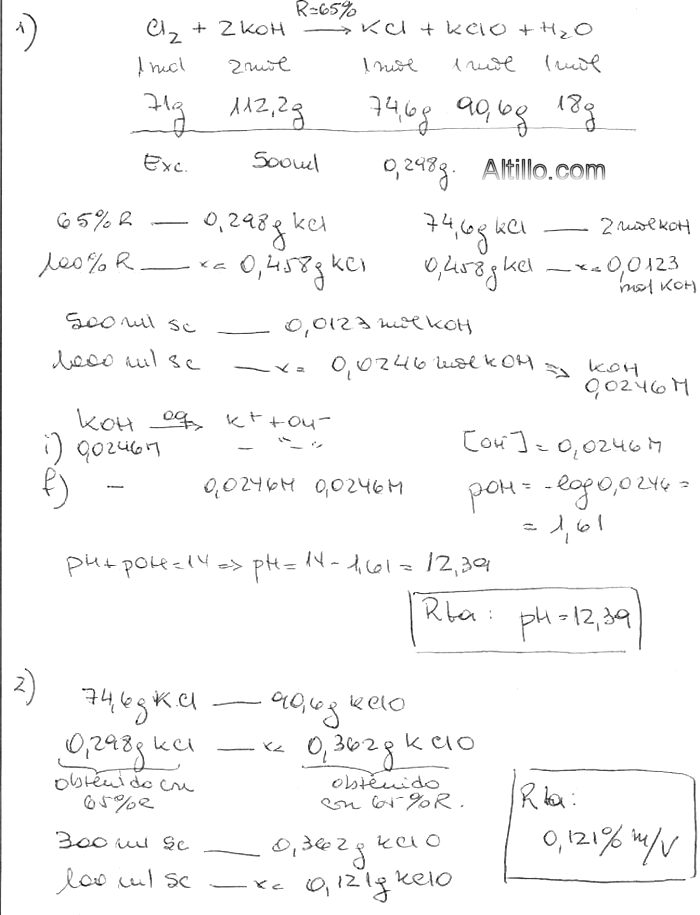 1) R=65%
Cl2 + 2KOH → KCl + KClO + H2O
1mol 2mol 1mol 1mol 1mol
71g 112,2g 74,6g 90,6g 18g
Exc. 500ml 0,298g. Altillo.com
65%R — 0,298g KCl 74,6g KCl — 2molKOH
100%R — x= 0,458g KCl 0,458g KCl — x= 0,0123 mol KOH
500 ml sc — 0,0123 mol KOH
1000 ml sc — x= 0,0246 mol KOH ⇒ KOH 0,0246 M
KOH aq→ K+ + OH-
i) 0,0246M – "–" [OH-] = 0,0246M
f) – 0,0246M 0,0246M pOH = -log 0,0246 =
= 1,61
pH + pOH = 14 ⇒ pH = 14 - 1,61 = 12,39
Rta: pH = 12,39
2) 74,6g KCl — 90,6g KClO
0,298g KCl — x= 0,362g KClO
obtenido con 65%R obtenido con 65%R.
300 ml sc — 0,362g KClO
100 ml sc — x= 0,121g KClO
Rta:
0,121% m/V